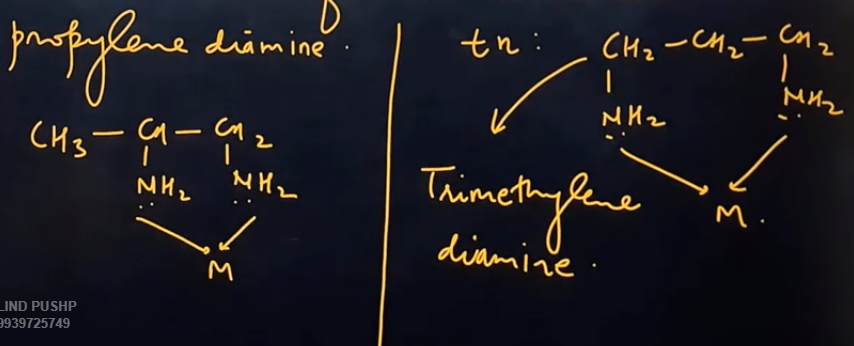 propylene diamine.
CH3 – CH – CH2
NH2 NH2
M
tn: CH2 – CH2 – CH2
NH2 NH2
M.
Trimethylene
diamine.
LIND PUSHP
9939725749